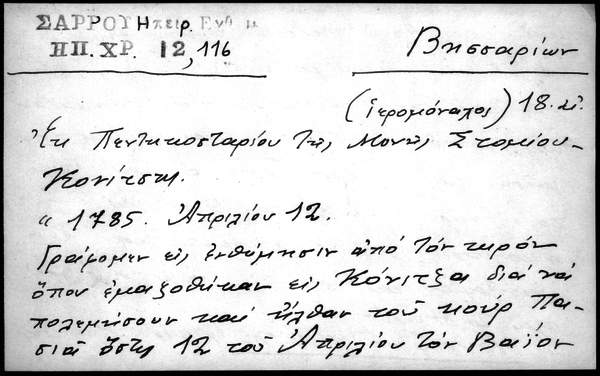 ΣΑΡΡΟΥ Ηπειρ. Ενθ μ
ΗΠ. ΧΡ. 12, 116
Βησσαρίων
(ἱερομόναχος) 18. αἰ.
Ἐκ Πεντηκοσταρίου τῆς Μονῆς Στομίου-
Κονίτσης.
« 1785. Ἀπριλίου 12.
Γράφομεν εἰς ἐνθύμησιν ἀπό τόν καιρόν
ὅπου ἐμαζοθήκαν εἰς Κόνιτζα διά νά
πολεμήσουν καί ἦλθαν τοῦ κούρ Πα-
σιᾶ 12 τοῦ Ἀπριλίου τόν Βαϊον